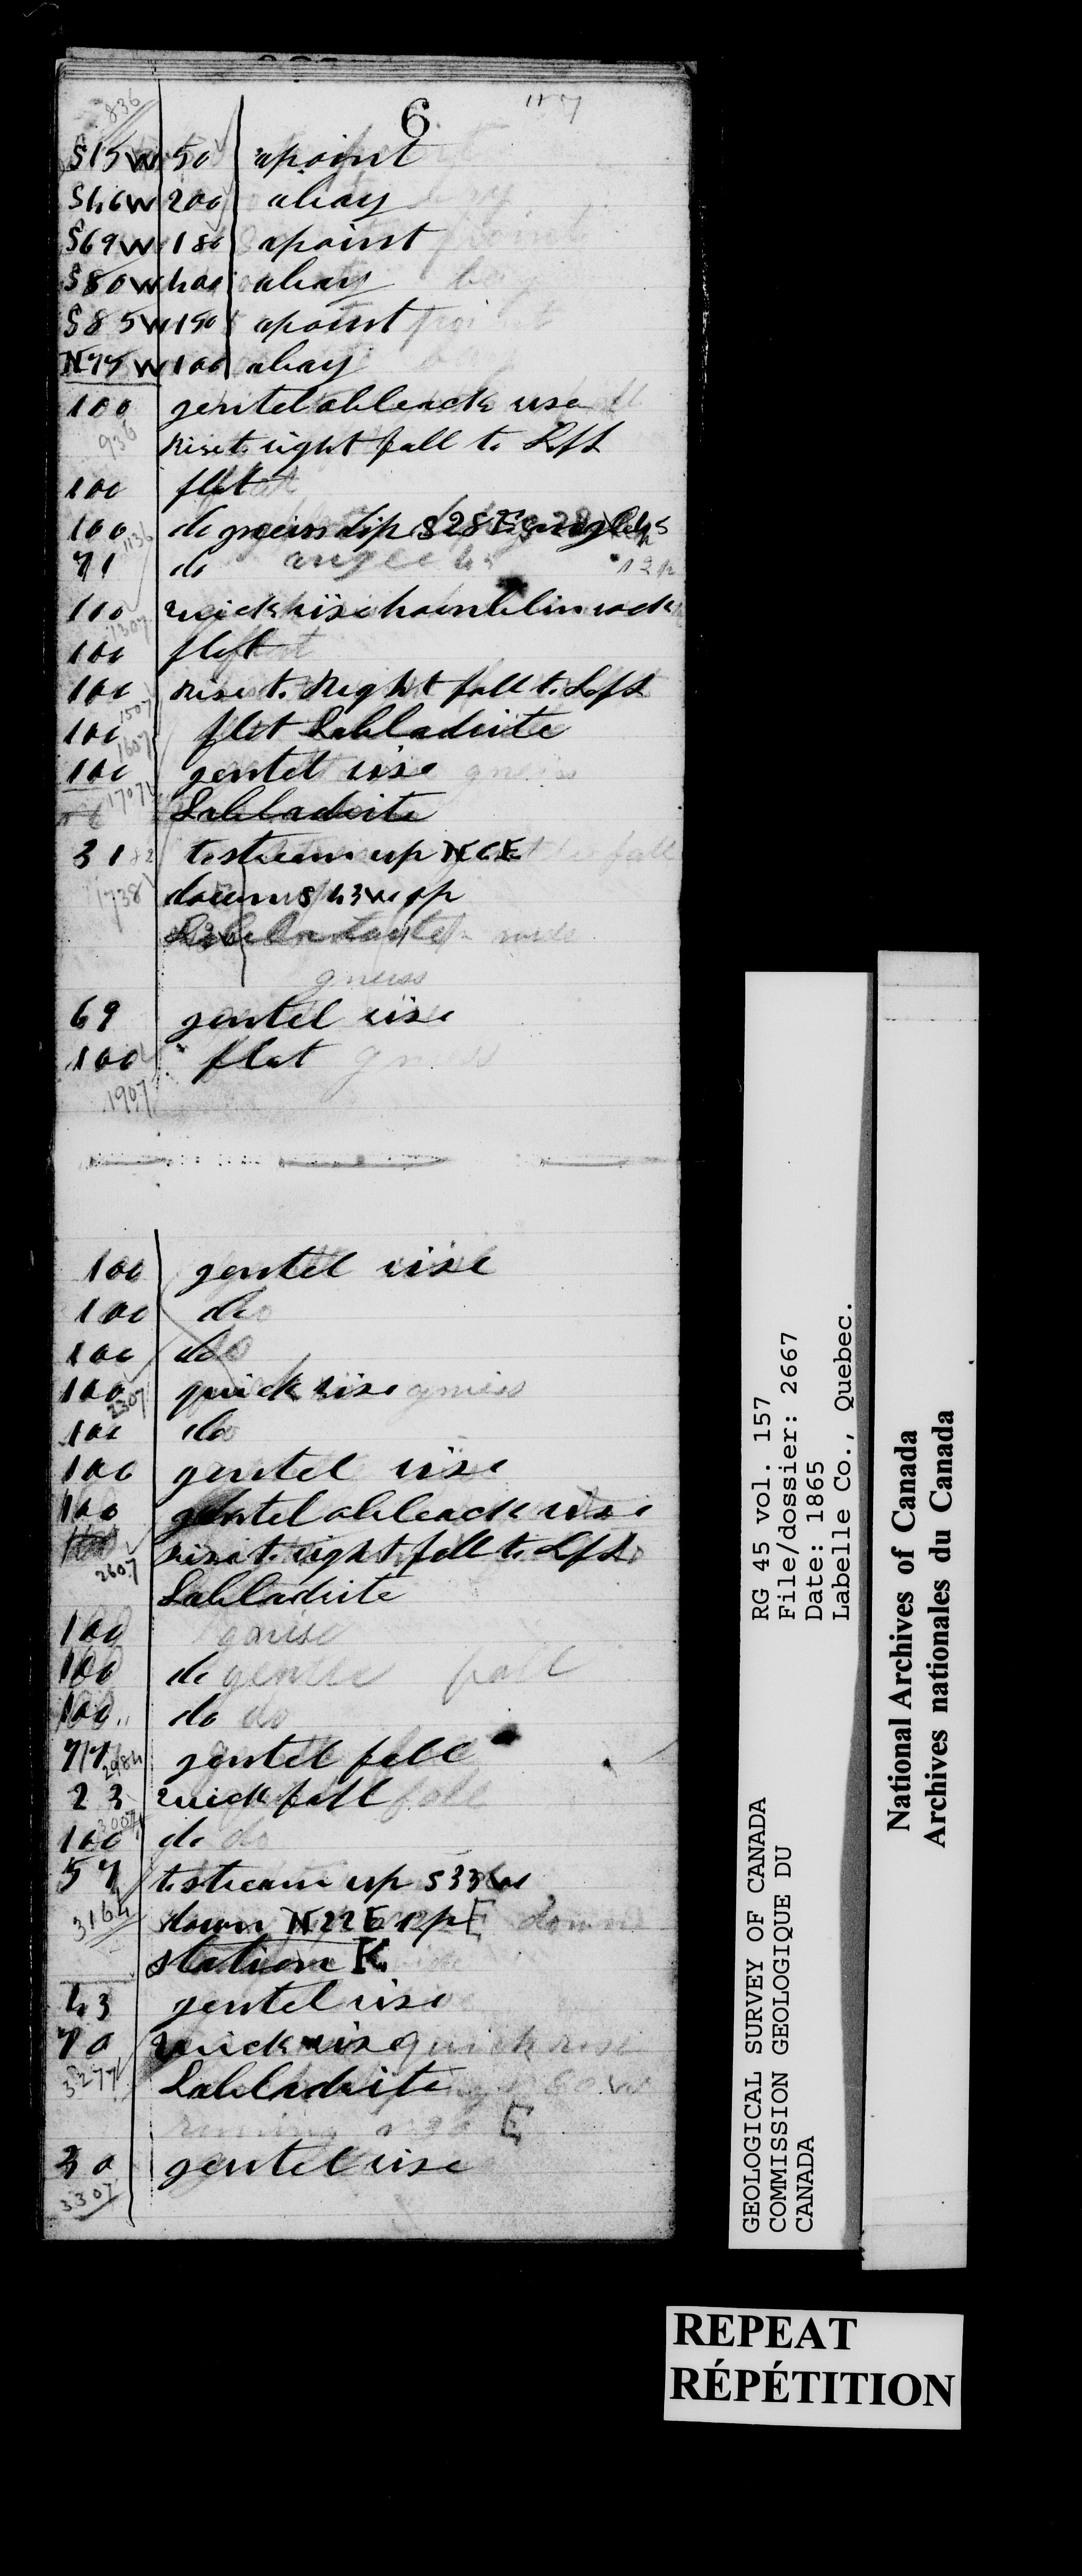 836
6
S15W 50 apoint
S46W 200 abay
S69W 180 apoint
S80W 400 abay
S85W 150 apoint
N75W 100 abay
100 gentel obleack rise
936 rise to right fall to Left
100 flat
100 do gneiss dip S28E angle 45
1136
71 do angel 45 12 p
110 quick rise hornblin rock
1307
100 flat
100 rise to Right fall to Left
1507
100 flat Labladorite
1607
100 gentel rise gneiss
1707
Labladorite
31 to stream up N6E
1738 down S43W
gneiss
69 gentel rise
100 flat gneiss
1907
100 gentel rise
100 do
100 do
100 quick rise gneiss
2307
100 do
100 gentel rise
100 gentel obleack rise
100 rise to right fall to Left
2607
Labladrite
100 gneise
100 do gentle fall
100 do do
77 gentel fall
2984
23 quick fall
3007
100 do do
57 to stream up S33W
3164 down N22E 12 p E down
station K
43 gentel rise
70 quick rise quick rise
3277 Labladrite
30 gentel rise
3307
GEOLOGICAL SURVEY OF CANADA
COMMISSION GEOLOGIQUE DU
CANADA
RG 45 vol. 157
File/dossier: 2667
Date: 1865
Labelle Co., Quebec.
National Archives of Canada
Archives nationales du Canada
REPEAT
RÉPÉTITION